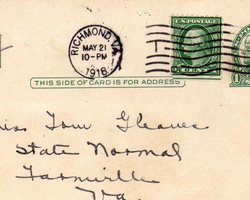 RICHMOND, VA.
MAY 21
10-PM
1918
U.S. POSTAGE
THIS SIDE OF CARD IS FOR ADDRESS
Miss Tom Gleaves
State Normal
Farmville
Va.